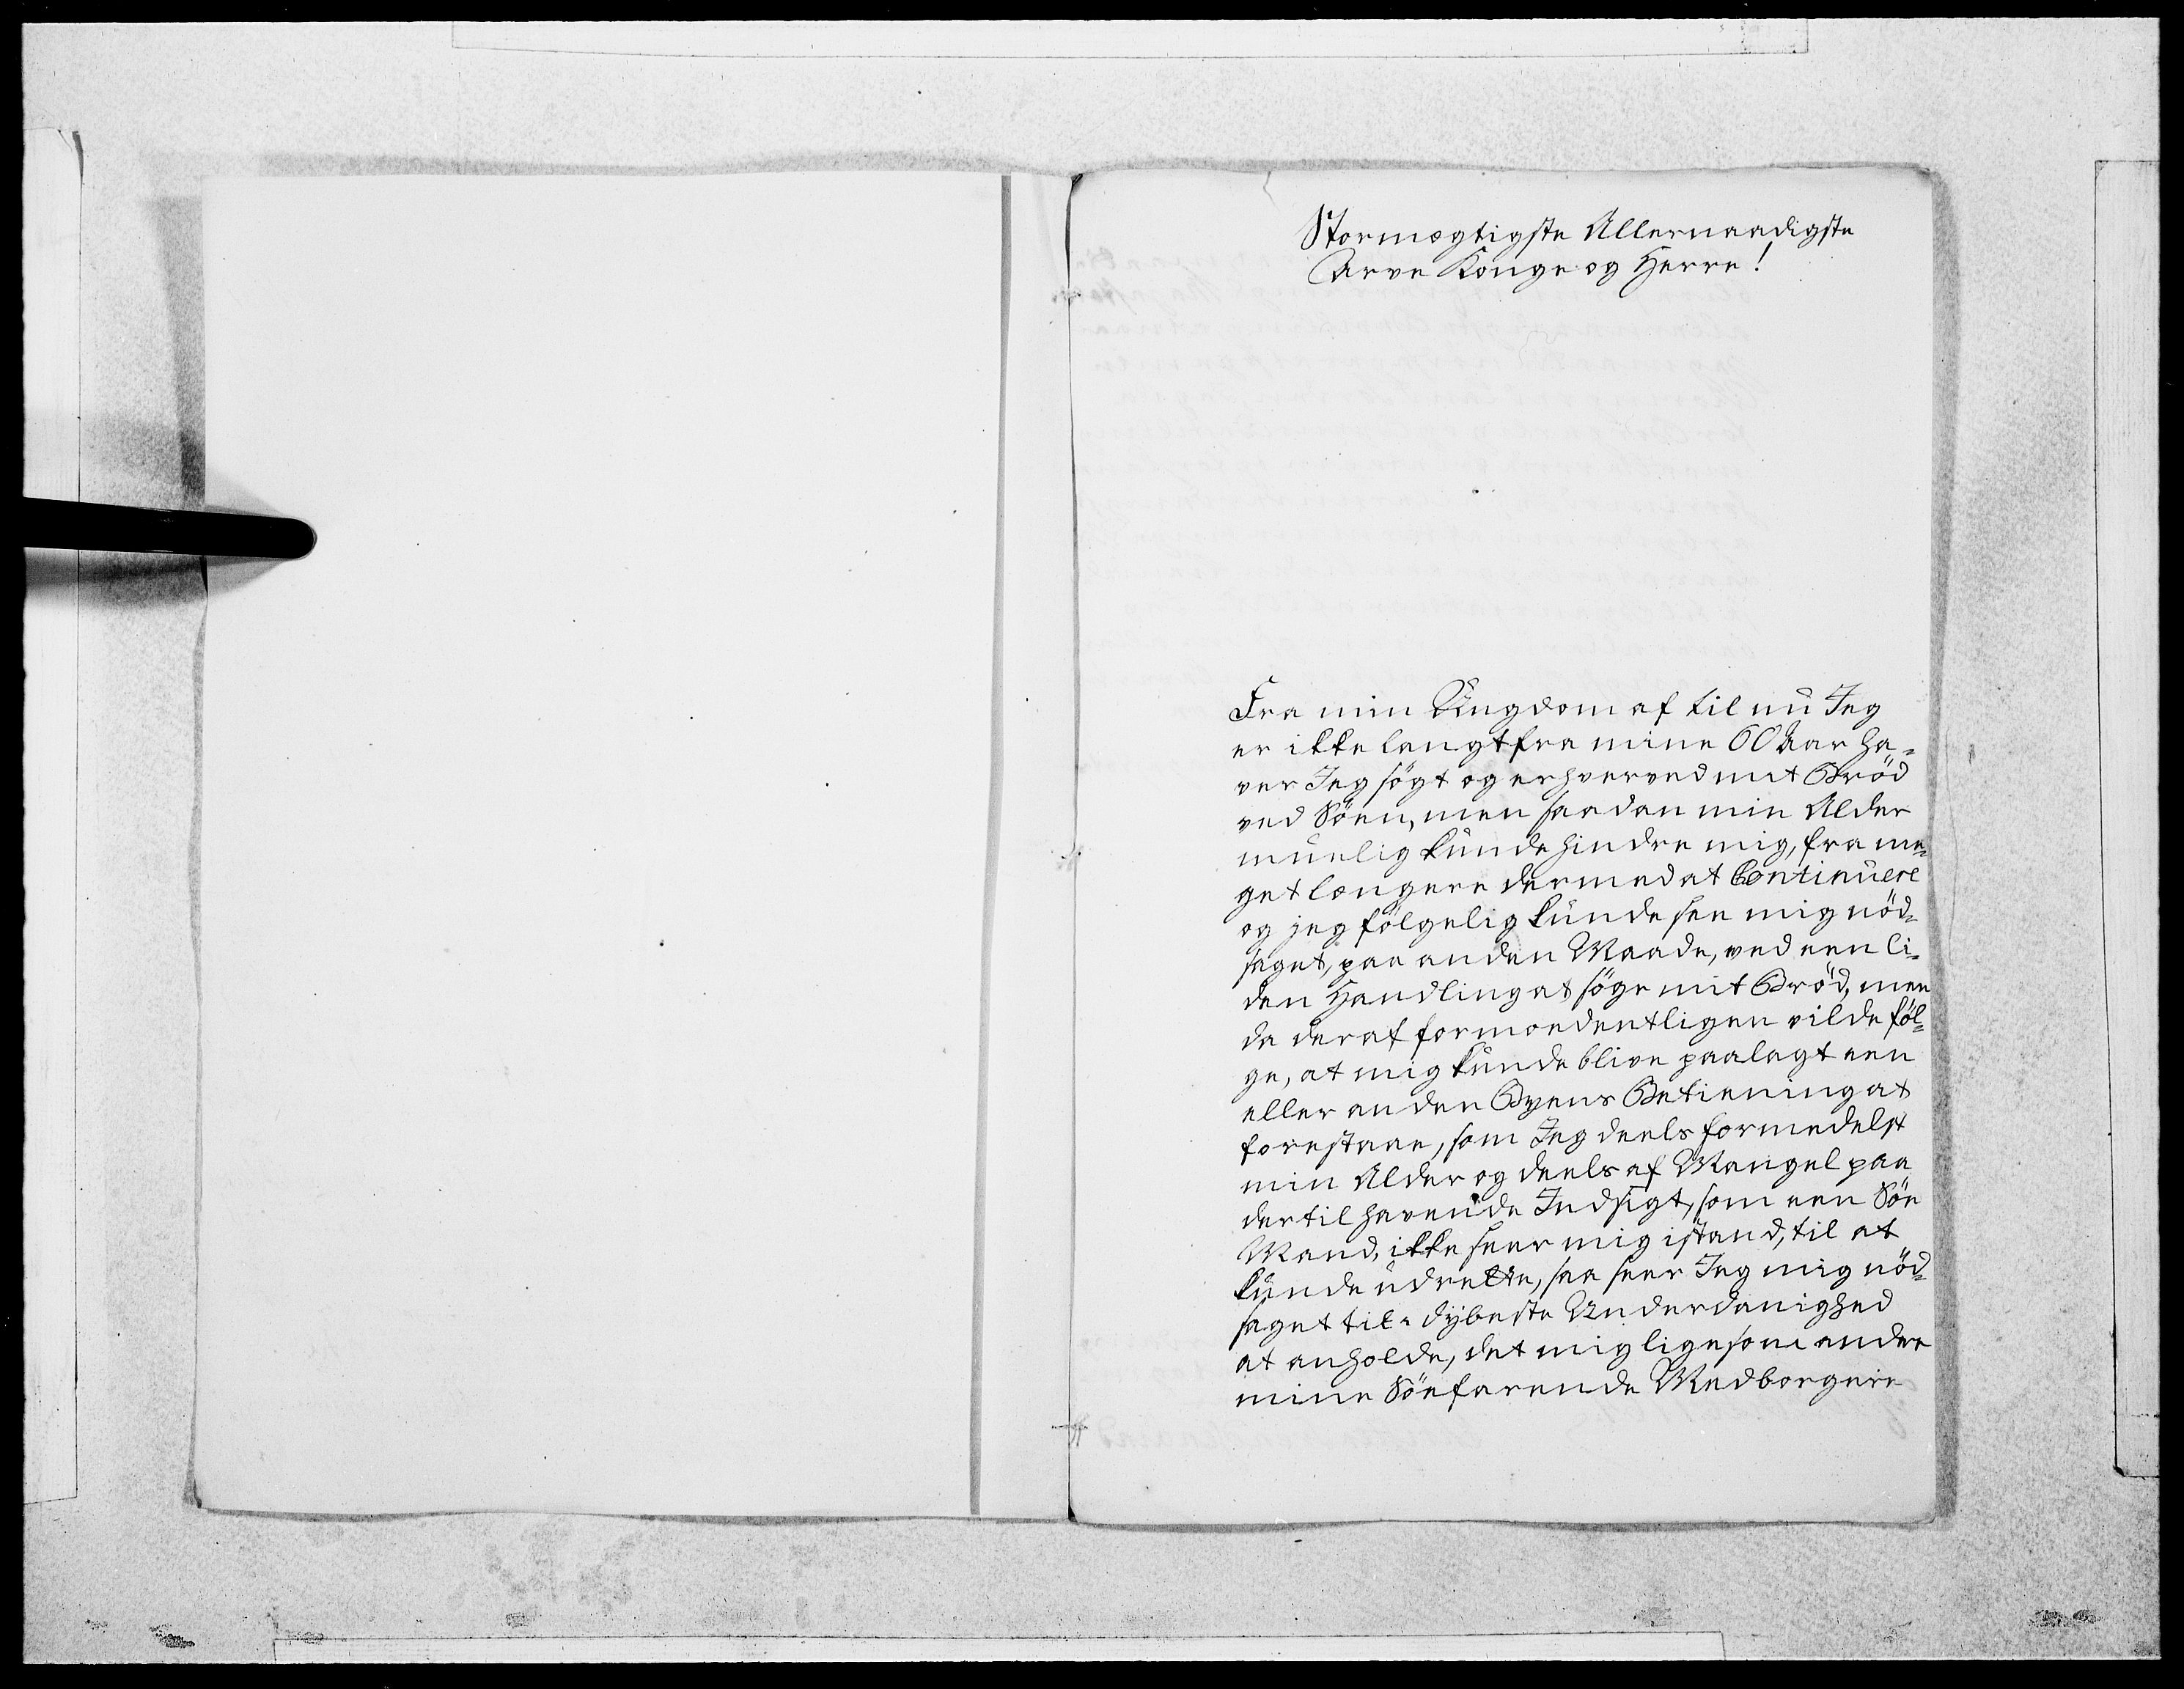 Stormægtigste Allernaadigste
Arve Konge og Herre!
Fra min Ungdom af til nu Jeg
er ikke langt fra mine 60 Aar ha-
ver Jeg søgt og erhverved mit Brød
ved Søen, men saadan min Alder
muelig kunde hindre mig, fra me-
get længere dermed at Continuere
og jeg følgelig kunde see mig nød-
saget, paa anden Maade, ved een li-
den Handling at søge mit Brød, men
da deraf formoedentligen vilde føl-
ge, at mig kunde blive paalagt een
eller anden Byens Betiening at
forestaae, som Jeg deels formedelst
min Alder og deels af Mangel paa
dertil havende Indsigt, som een Søe
Mand, ikke seer mig istand, til at
kunde udrette, saa seer Jeg mig nød-
saget til i dybeste Underdanighed
at anholde, det mig ligesom andre
mine Søefarende Medborgere